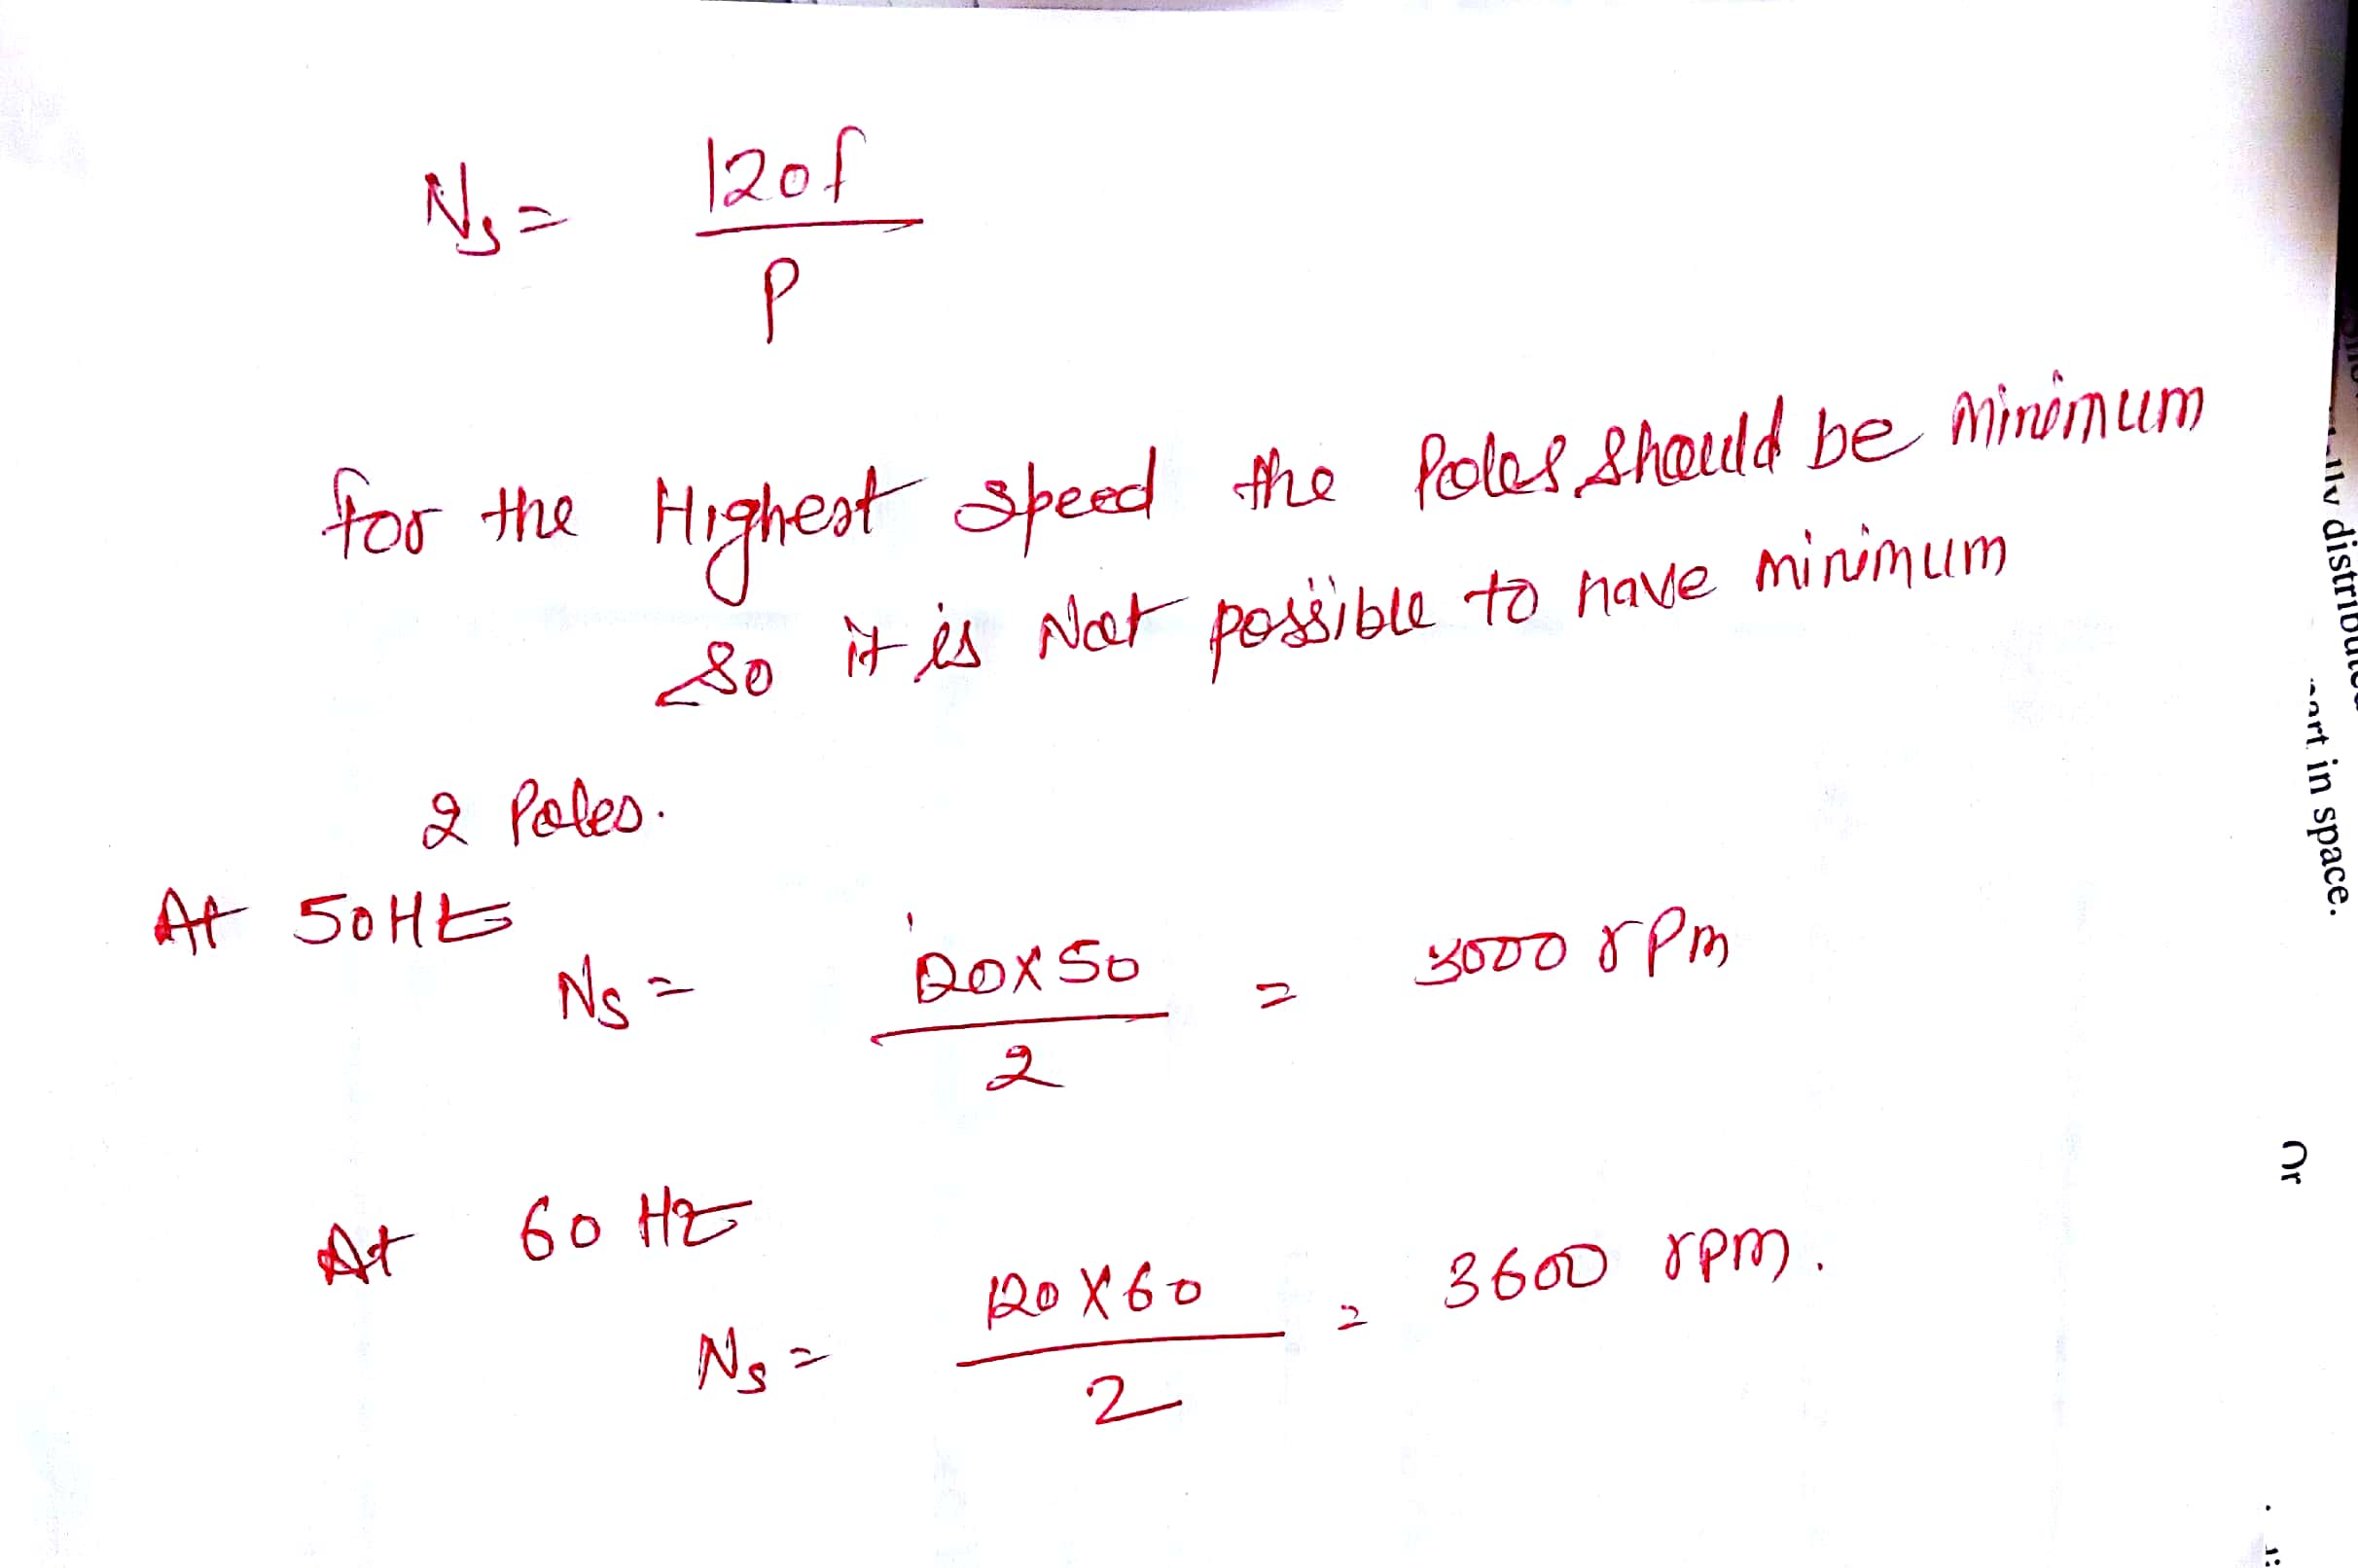 Ns = 120f
P
for the Highest speed the Poles should be minimum
So it is Not possible to have minimum
2 Poles.
At 50Hz
Ns = 120X50 = 3000 rpm
2
At 60 Hz
Ns = 120X60 = 3600 rpm.
2
in space.
Or